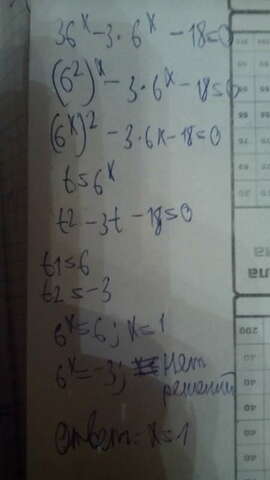 36^x - 3 · 6^x - 18 = 0
(6^2)^x - 3 · 6^x - 18 = 0
(6^x)^2 - 3 · 6x - 18 = 0
t = 6^x
t2 - 3t - 18 = 0
t1 = 6
t2 = -3
6^x = 6; x = 1
6^x = -3; Нет
решений
Ответ: x = 1
200
40
40